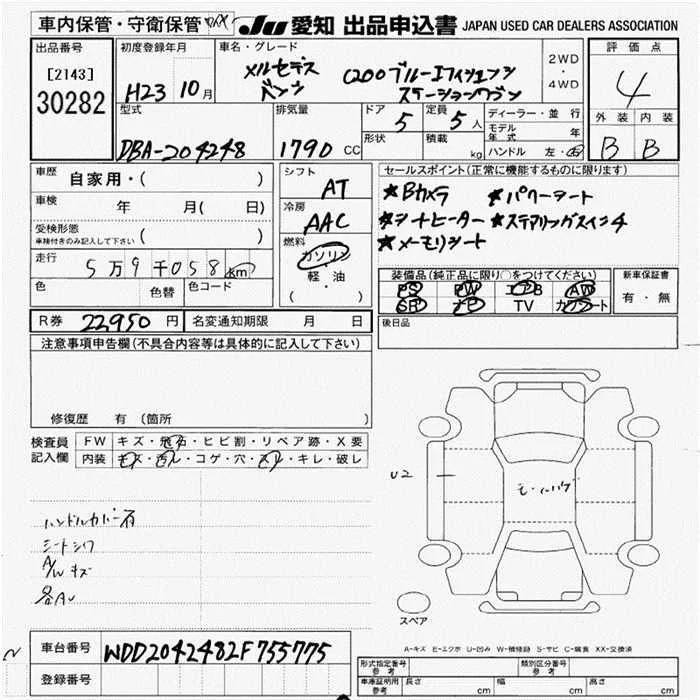 車内保管・守衛保管 JU 愛知 出品申込書 JAPAN USED CAR DEALERS ASSOCIATION
出品番号 初度登録年月 車名・グレード 評価点
[2143] メルセデス ベンツ C200ブルーエフィシェンシ ステーションワゴン 2WD・4WD
30282 H23 10月 4
型式 排気量 ドア 定員 ディーラー・並行 外装 内装
DBA-204248 1790 CC 5 5人 モデル年式 年 B B
形状 積載 kg ハンドル 左・右
車歴 自家用・( ) シフト AT セールスポイント(正常に機能するものに限ります)
車検 年 月( 日) 冷房 AAC ★Bカメラ ★パワーシート
受検形態 ( ) ★シートヒーター ★ステアリングスイッチ
車検付きのみ記入して下さい 燃料 ガソリン ★メモリシート
走行 5万9千058km 軽・油
色 色替 色コード ( )
装備品(純正品に限り○をつけてください) 新車保証書
PS PW エアB AW 有・無
SR ナビ TV カワシート
R券 22950円 名変通知期限 月 日 後日品
注意事項申告欄(不具合内容等は具体的に記入して下さい)
修復歴 有 (箇所
検査員 FW キズ・飛石・ヒビ割・リペア跡・X要
記入欄 内装 キズ・汚レ・コゲ・穴・スレ・キレ・破レ
U2
ハンドルカバー
シートシワ
A/Wキズ
スペア
A-キズ E-エクボ U-凹み W-補修跡 S-サビ C-腐食 XX-交換済
車台番号 WDD2042482F755775
登録番号
形式指定番号 参考 類別区分番号 参考
車庫証明用 参考 長さ cm 幅 cm 高さ cm